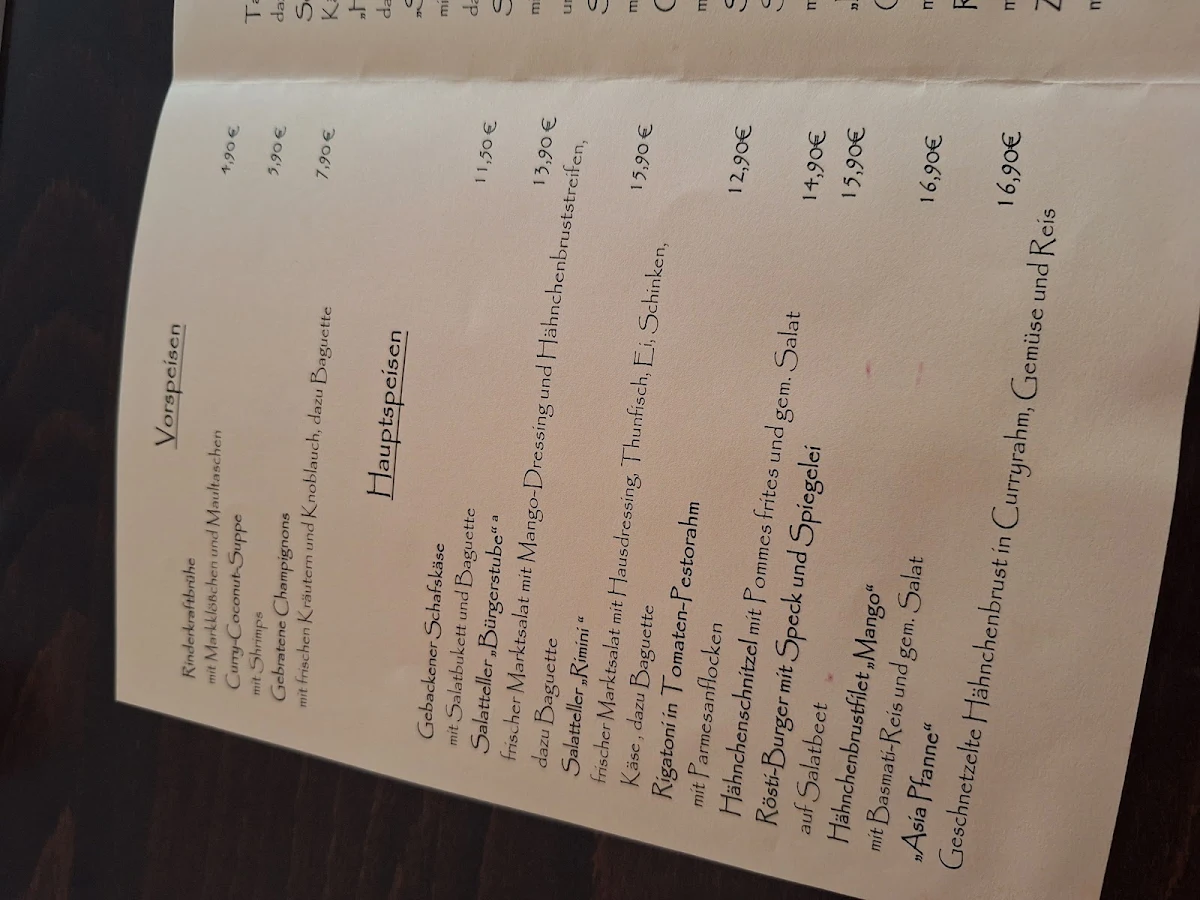 Vorspeisen
Rinderkraftbrühe 4,90€
mit Markklößchen und Maultaschen
Curry-Coconut-Suppe 5,90€
mit Shrimps
Gebratene Champignons 7,90€
mit frischen Kräutern und Knoblauch, dazu Baguette
Hauptspeisen
Gebackener Schafskäse 11,50€
mit Salatbukett und Baguette
Salatteller „Bürgerstube“ a 13,90€
frischer Marktsalat mit Mango-Dressing und Hähnchenbruststreifen,
dazu Baguette
Salatteller „Rimini “ 15,90€
frischer Marktsalat mit Hausdressing, Thunfisch, Ei, Schinken,
Käse , dazu Baguette
Rigatoni in Tomaten-Pestorahm 12,90€
mit Parmesanflocken
Hähnchenschnitzel mit Pommes frites und gem. Salat 14,90€
Rösti-Burger mit Speck und Spiegelei 15,90€
auf Salatbeet
Hähnchenbrustfilet „Mango“ 16,90€
mit Basmati-Reis und gem. Salat
„Asia Pfanne“ 16,90€
Geschnetzelte Hähnchenbrust in Curryrahm, Gemüse und Reis